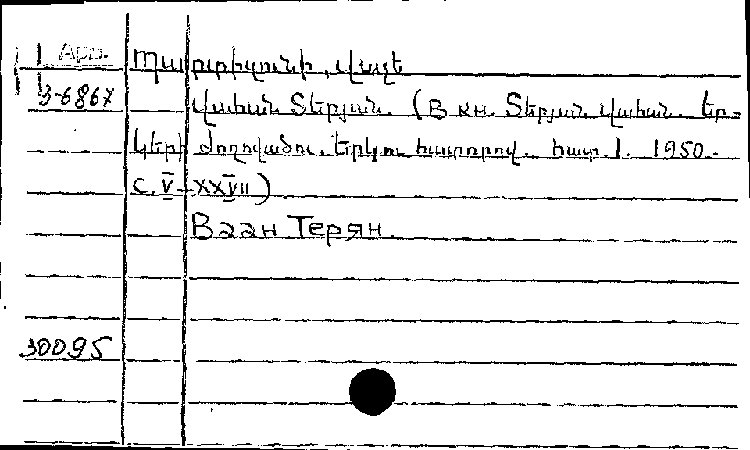 Арм. Պարտիզունի, Վաչե
3-6867 Վահան Տերյան. (В кн. Տերյան Վահան. Եր-
կերի ժողովածու. Երկու հատորով. հատ 1. 1950.
с. V-XXVII)
Ваан Терян.
30095